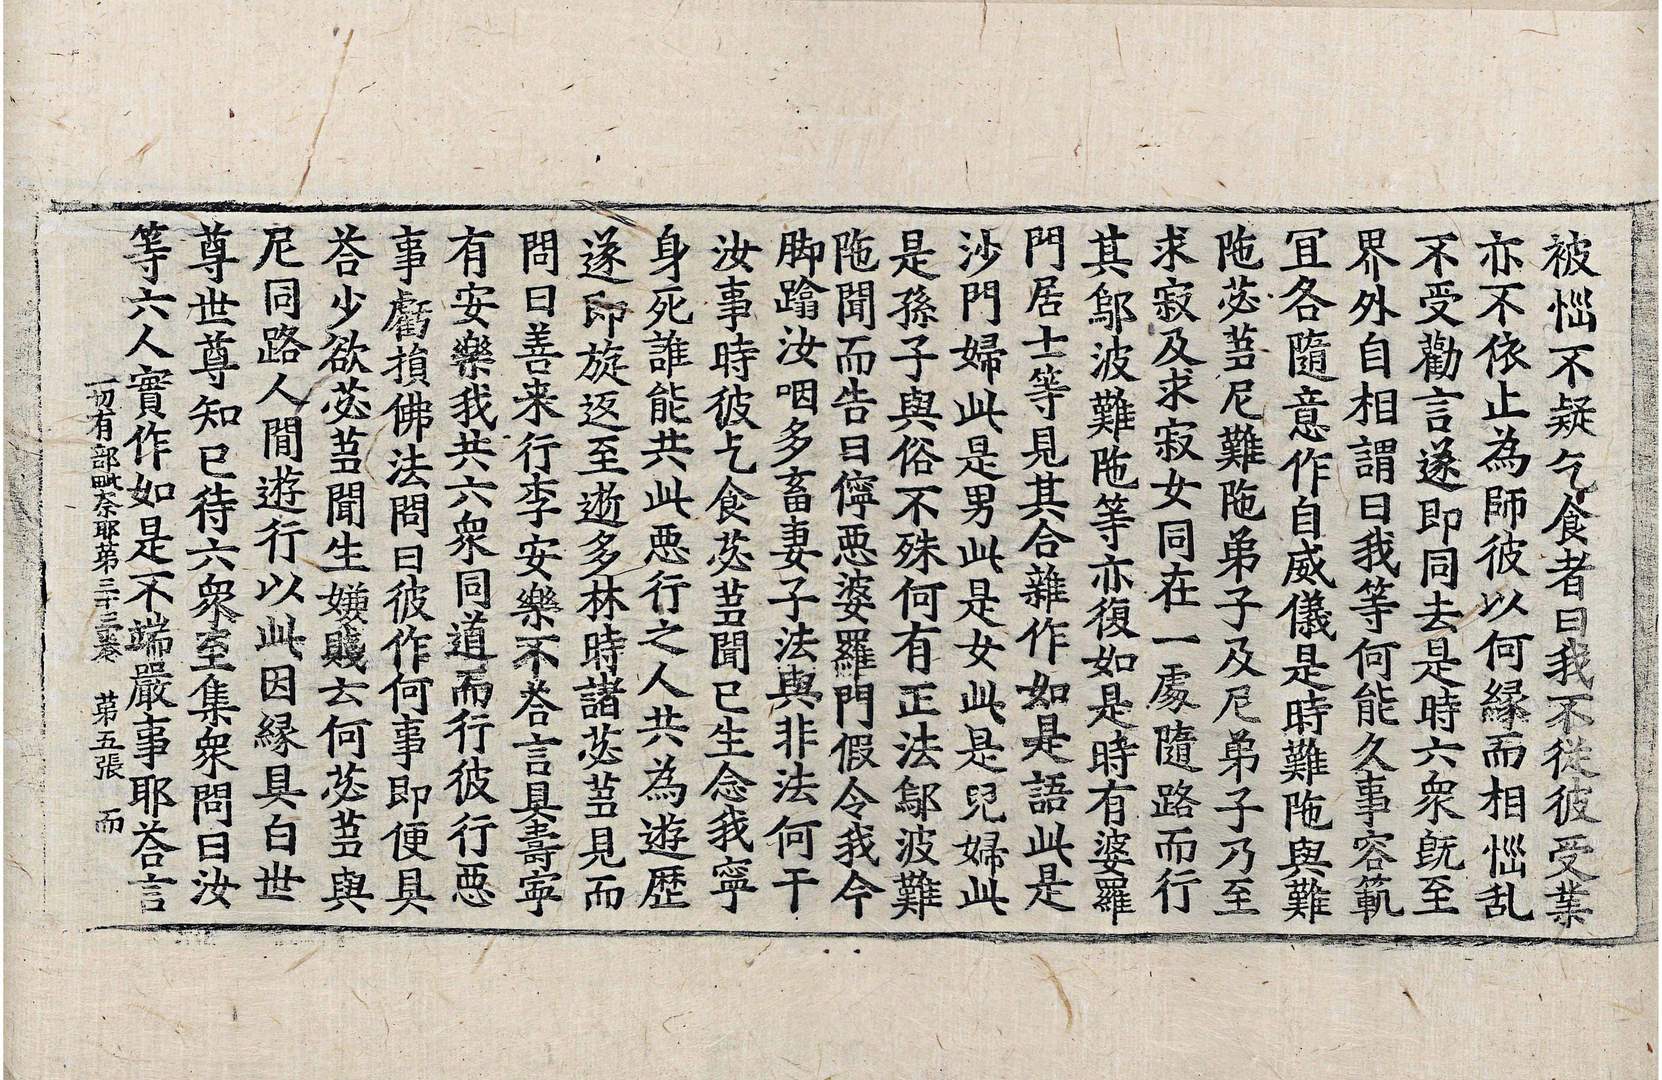 被惱不疑乞食者曰我不從彼受業
亦不依止為師彼以何緣而相惱乱
不受勸言遂即同去是時六衆旣至
界外自相謂曰我等何能久事容範
冝各隨意作自威儀是時難陁與難
陁苾芻尼難陁弟子及尼弟子乃至
求寂及求寂女同在一處隨路而行
其鄔波難陁等亦復如是時有婆羅
門居士等見其合雜作如是語此是
沙門婦此是男此是女此是兒婦此
是孫子與俗不殊何有正法鄔波難
陁聞而告曰儜惡婆羅門假令我今
脚蹹汝咽多畜妻子法與非法何干
汝事時彼乞食苾芻聞已生念我寧
身死誰能共此惡行之人共為遊歷
遂即旋返至逝多林時諸苾芻見而
問曰善来行李安樂不荅言具壽寧
有安樂我共六衆同道而行彼行惡
事虧損佛法問曰彼作何事即便具
荅少欲苾芻聞生嫌賤云何苾芻與
尼同路人間遊行以此因緣具白世
尊世尊知已待六衆至集衆問曰汝
等六人實作如是不端嚴事耶荅言
一切有部毗奈耶第三十三卷 第五張 而